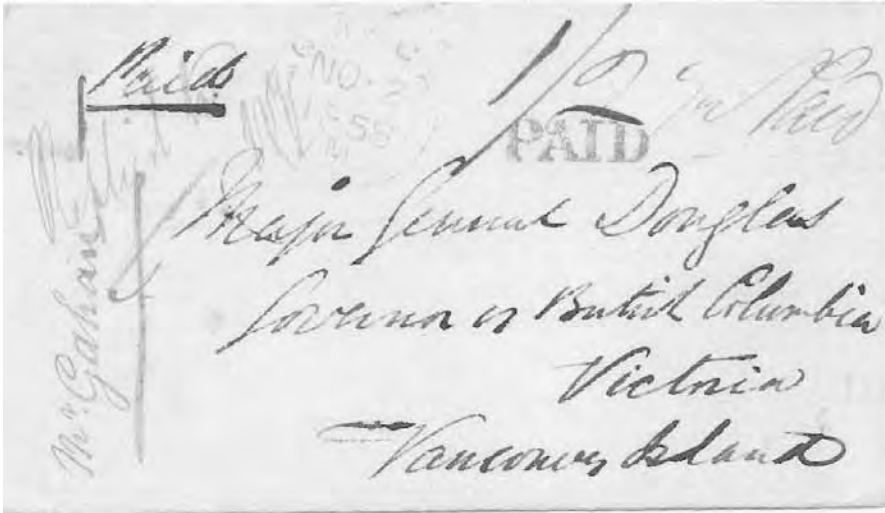 Paid
1/2 Paid
PAID
NO
58
Major General Douglas
Governor of British Columbia
Victoria
Vancouver Island
Mr. Gahan